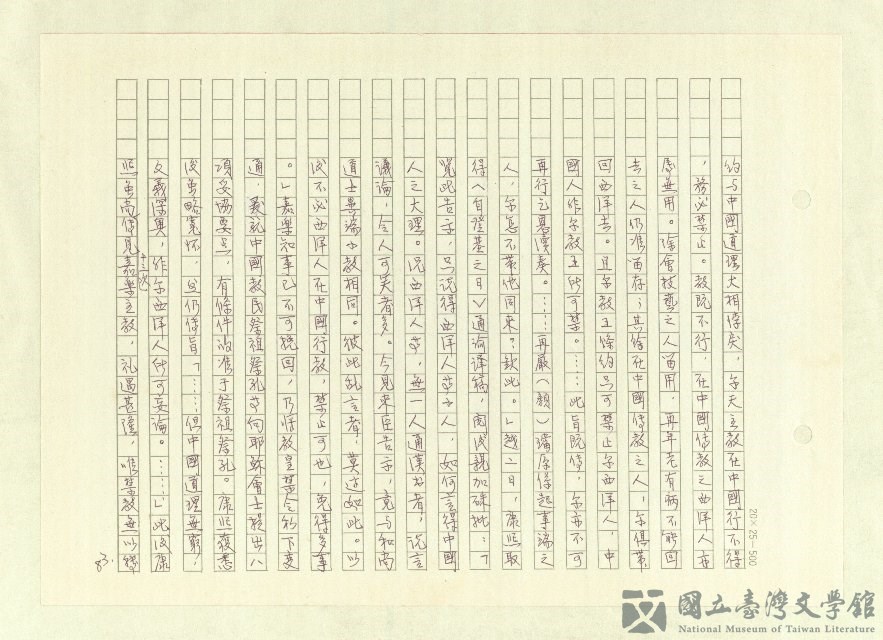 約与中國道理大相悖戾，尔天主教在中國行不得
，務必禁止。教既不行，在中國傳教之西洋人亦
屬無用。除會技藝之人留用，再年老有病不能回
去之人仍准留存；其餘在中國傳教之人，尔俱帶
回西洋去。且尔教王條約只可禁止尔西洋人，中
國人非尔教王所可禁。……此旨既傳，尔亦不可
再行乞恩瀆奏。……再嚴（顏）璫原係起事端之
人，尔怎不帶他同來？欽此。」越二日，康熙取
得〈自登基之日〉通諭譯稿，閱後親加硃批：「
覽此告示，只說得西洋人等小人，如何言得中國
人之大理。況西洋人等，無一人通漢書者，說言
議論，令人可笑者多。今見來臣告示，竟与和尚
道士異端小教相同。彼此亂言者，莫过如此。以
後不必西洋人在中國行教，禁止可也，免得多事
。」嘉樂知事已不可挽回，乃将教皇禁令稍下变
通，就中國教民祭祖祭孔等向耶穌會士提出八
項妥協要点，有條件的准于祭祖祭孔。康熙覆悉
後虽略寬怀，但仍傳旨「……但中國道理無窮，
文義深奧，非尔西洋人所可妄論。……」此後康
熙虽尚傳見嘉樂主教，礼遇甚隆，唯禁教無以繆
十三次
83.
20×25=500
國立臺灣文學館
National Museum of Taiwan Literature